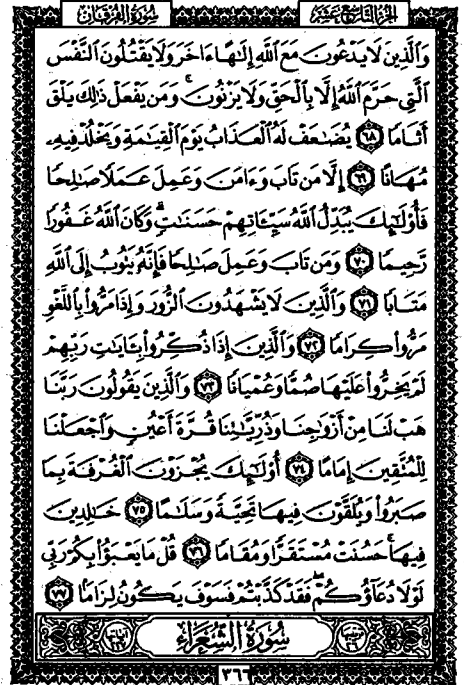 الجزء التاسع عشر
سورة الفرقان
وَالَّذِينَ لَا يَدْعُونَ مَعَ اللَّهِ إِلَٰهًا ءَاخَرَ وَلَا يَقْتُلُونَ النَّفْسَ
الَّتِي حَرَّمَ اللَّهُ إِلَّا بِالْحَقِّ وَلَا يَزْنُونَ ۚ وَمَن يَفْعَلْ ذَٰلِكَ يَلْقَ
أَثَامًا ۝٦٨ يُضَٰعَفْ لَهُ الْعَذَابُ يَوْمَ الْقِيَٰمَةِ وَيَخْلُدْ فِيهِۦ
مُهَانًا ۝٦٩ إِلَّا مَن تَابَ وَءَامَنَ وَعَمِلَ عَمَلًا صَٰلِحًا
فَأُو۟لَٰٓئِكَ يُبَدِّلُ اللَّهُ سَيِّـَٔاتِهِمْ حَسَنَٰتٍ ۗ وَكَانَ اللَّهُ غَفُورًا
رَّحِيمًا ۝٧٠ وَمَن تَابَ وَعَمِلَ صَٰلِحًا فَإِنَّهُۥ يَتُوبُ إِلَى اللَّهِ
مَتَابًا ۝٧١ وَالَّذِينَ لَا يَشْهَدُونَ الزُّورَ وَإِذَا مَرُّوا۟ بِاللَّغْوِ
مَرُّوا۟ كِرَامًا ۝٧٢ وَالَّذِينَ إِذَا ذُكِّرُوا۟ بِـَٔايَٰتِ رَبِّهِمْ
لَمْ يَخِرُّوا۟ عَلَيْهَا صُمًّا وَعُمْيَانًا ۝٧٣ وَالَّذِينَ يَقُولُونَ رَبَّنَا
هَبْ لَنَا مِنْ أَزْوَٰجِنَا وَذُرِّيَّٰتِنَا قُرَّةَ أَعْيُنٍ وَاجْعَلْنَا
لِلْمُتَّقِينَ إِمَامًا ۝٧٤ أُو۟لَٰٓئِكَ يُجْزَوْنَ الْغُرْفَةَ بِمَا
صَبَرُوا۟ وَيُلَقَّوْنَ فِيهَا تَحِيَّةً وَسَلَٰمًا ۝٧٥ خَٰلِدِينَ
فِيهَا ۚ حَسُنَتْ مُسْتَقَرًّا وَمُقَامًا ۝٧٦ قُلْ مَا يَعْبَؤُا۟ بِكُمْ رَبِّي
لَوْلَا دُعَآؤُكُمْ ۖ فَقَدْ كَذَّبْتُمْ فَسَوْفَ يَكُونُ لِزَامًۢا ۝٧٧
سُورَةُ الشُّعَرَاءِ
٣٦٦